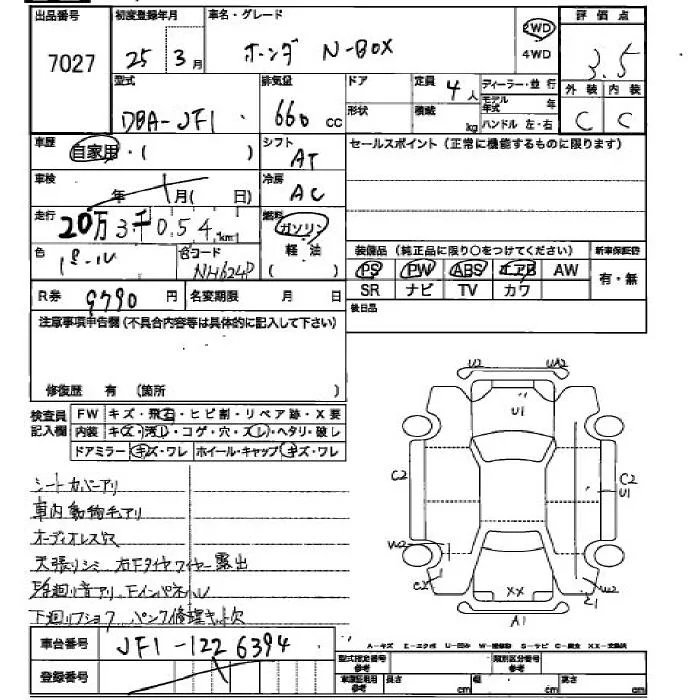 出品番号 初度登録年月 車名・グレード 2WD 評価点
7027 25 3月 ホンダ N-BOX 4WD 3.5
型式 排気量 ドア 定員 4人 ディーラー・並行 外装 内装
DBA-JF1 660cc 形状 積載 kg モデル年式 年 C C
ハンドル 左・右
車歴 自家用・( ) シフト AT セールスポイント(正常に機能するものに限ります)
車検 年 月( 日) 冷房 AC
走行 20万3千054km 燃料 ガソリン
軽油
( )
色 パール 色コード NH624P 装備品(純正品に限り○をつけてください) 新車保証書
PS PW ABS エアB AW 有・無
R券 9790円 名変期限 月 日 SR ナビ TV カワ
注意事項申告欄(不具合内容等は具体的に記入して下さい) 後日品
修復歴 有 (箇所 )
検査員記入欄 FW キズ・飛石・ヒビ割・リペア跡・X要
内装 キズ・汚レ・コゲ・穴・スレ・ヘタリ・破レ
ドアミラー キズ・ワレ ホイール・キャップ キズ・ワレ
U2 UA2
U1
C2 C2
U1
W2 W2
C2 XX E1
A1
シートカバーアリ
車内動物毛アリ
オーディオレス
天張リシミ 右Fタイヤワイヤー露出
下廻リショック パンク修理キット欠
車台番号 JF1-1226394
A-キズ E-エクボ U-凹み W-補修跡 S-サビ C-腐食 XX-交換済
登録番号 型式指定番号 参考 類別区分番号 参考
車庫証明用 参考 長さ cm 幅 cm 高さ cm